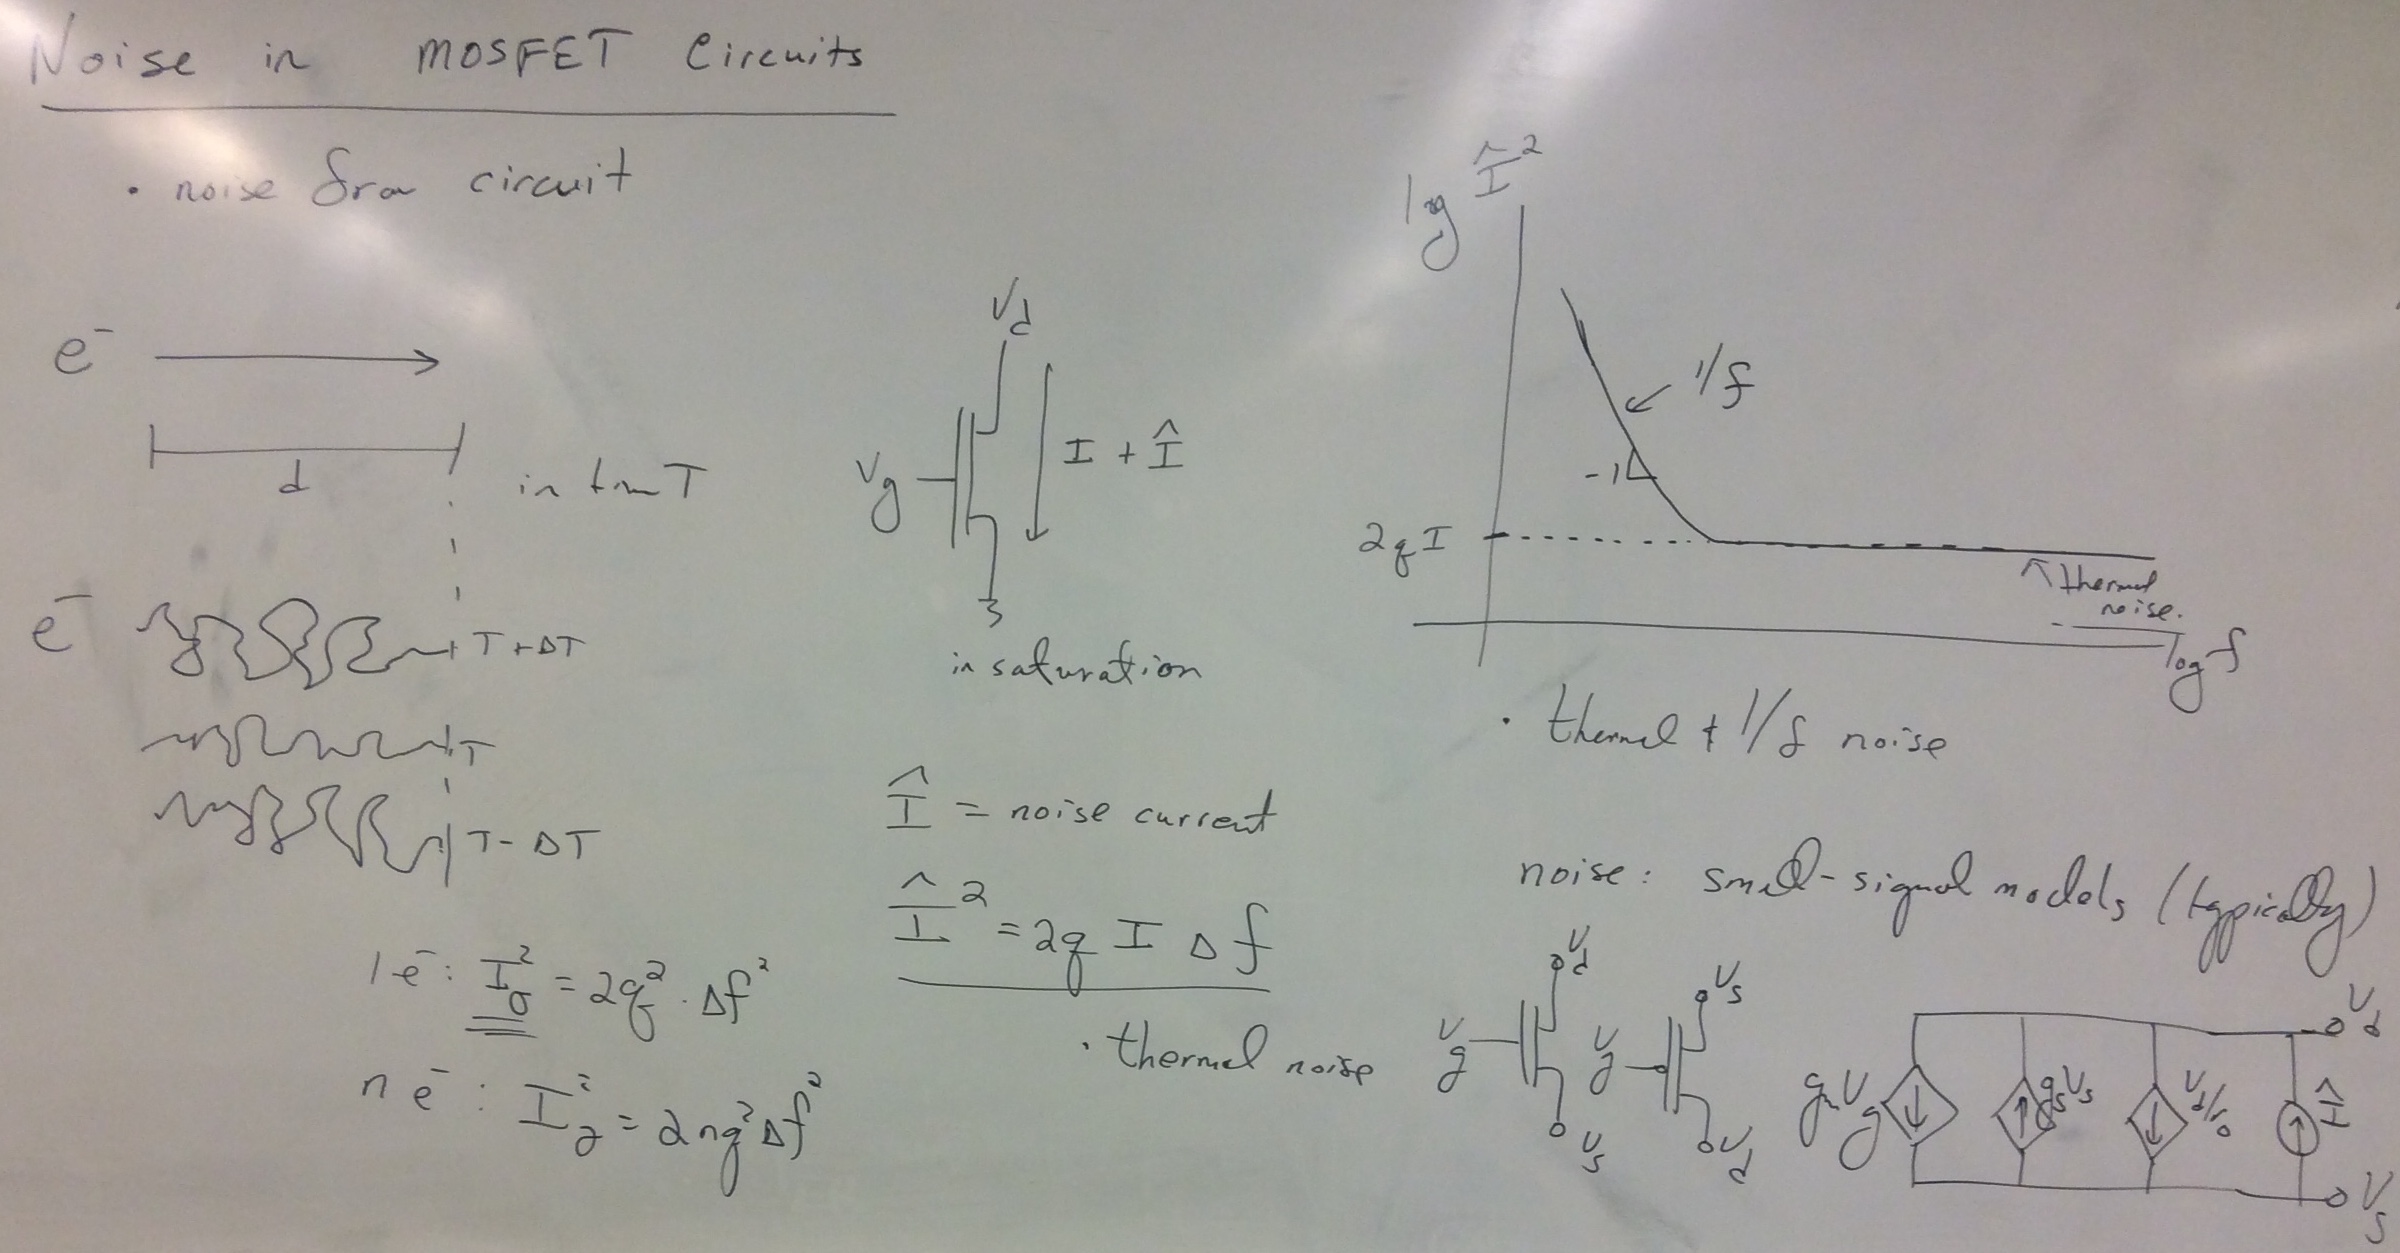 Noise in MOSFET Circuits
• noise from circuit
e⁻
d
in time T
e⁻
T + ΔT
T
T - ΔT
1e⁻: I²σ = 2q² · Δf²
n e⁻: I²σ = 2nq²Δf²
Vd
Vg
I + Î
in saturation
Î = noise current
Î² = 2q I Δf
• thermal noise
log Î²
1/f
-1
2qI
thermal
noise.
log f
• thermal & 1/f noise
noise: small-signal models (typically)
Vd
Vg
Vs
Vs
Vg
Vd
gmVg
gsVs
Vd/ro
Î
Vd
Vs